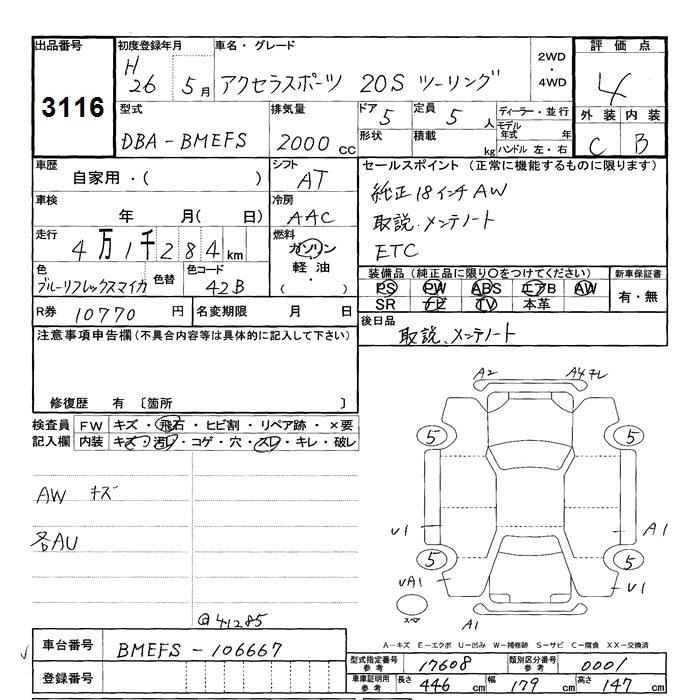 出品番号 初度登録年月 車名・グレード 2WD・4WD 評価点
3116 H26 5月 アクセラスポーツ 20S ツーリング 4
型式 排気量 ドア 5 定員 5人 ディーラー・並行 外装 内装
DBA-BMEFS 2000cc 形状 積載 kg モデル年式 年 ハンドル 左・右 C B
車歴 シフト セールスポイント (正常に機能するものに限ります)
自家用・( ) AT 純正18インチAW
車検 冷房 取説、メンテノート
年 月( 日) AAC ETC
走行 燃料
4万1千284km ガソリン
色 色替 色コード 軽油・ 装備品 (純正品に限り○をつけてください) 新車保証書
ブルーリフレックスマイカ 42B ・( ) PS PW ABS エアB AW 有・無
SR ナビ TV 本革
R券 10770円 名変期限 月 日 後日品
注意事項申告欄(不具合内容等は具体的に記入して下さい) 取説、メンテノート
修復歴 有 〔箇所 〕
検査員記入欄 FW キズ・飛石・ヒビ割・リペア跡・×要
内装 キズ・汚レ・コゲ・穴・スレ・キレ・破レ
A2 A4ズレ
5 5
AW キズ
各AU
V1 A1
5 5
UA1 V1
スペア A1
@41285
A-キズ E-エクボ U-凹み W-補修跡 S-サビ C-腐食 XX-交換済
車台番号 BMEFS-106667
型式指定番号参考 17608 類別区分番号参考 0001
登録番号
車庫証明用参考 長さ 446cm 幅 179cm 高さ 147cm